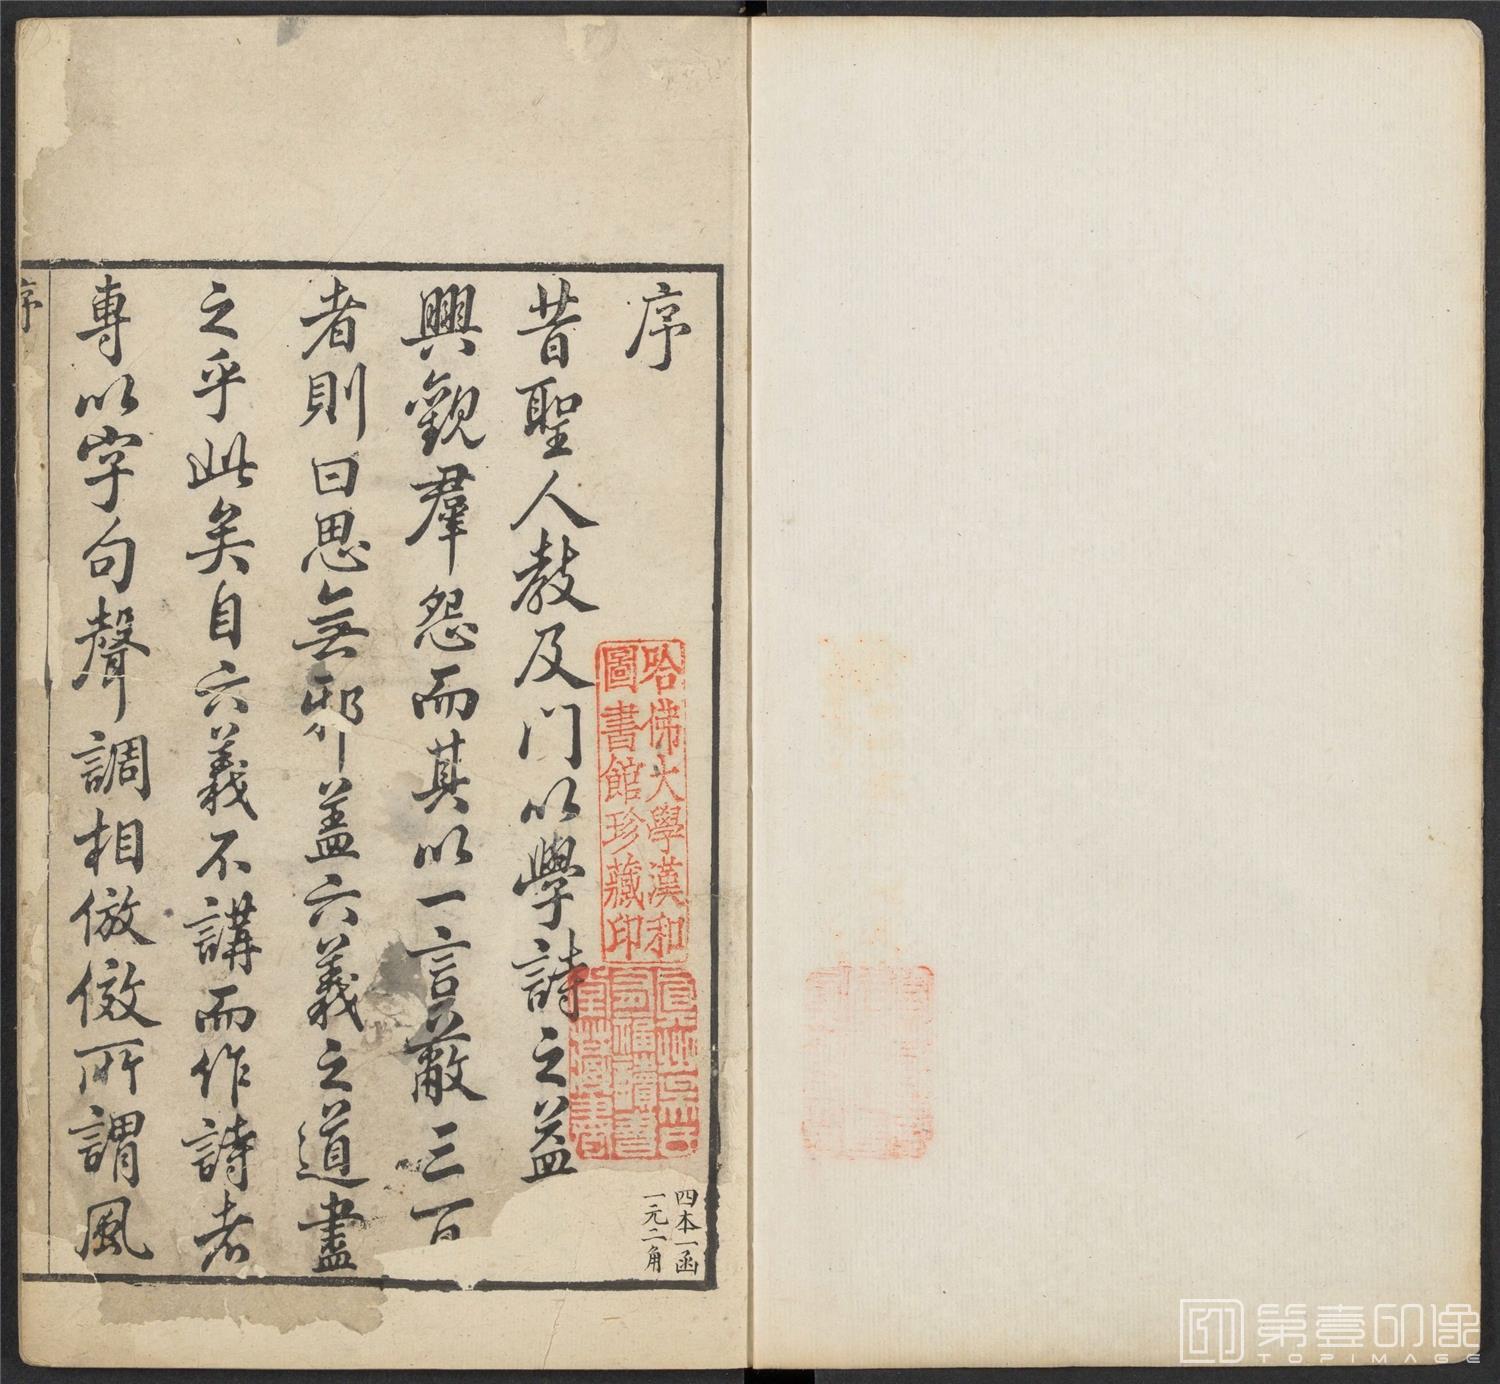 序
昔聖人教及門以學詩之益
興觀羣怨而其以一言蔽三百
者則曰思無邪蓋六義之道盡
之乎此矣自六義不講而作詩者
專以字句聲調相倣傚所謂風
序
哈佛大學漢和
圖書館珍藏印
四本一函
一元二角
第壹印像
TOPIMAGE